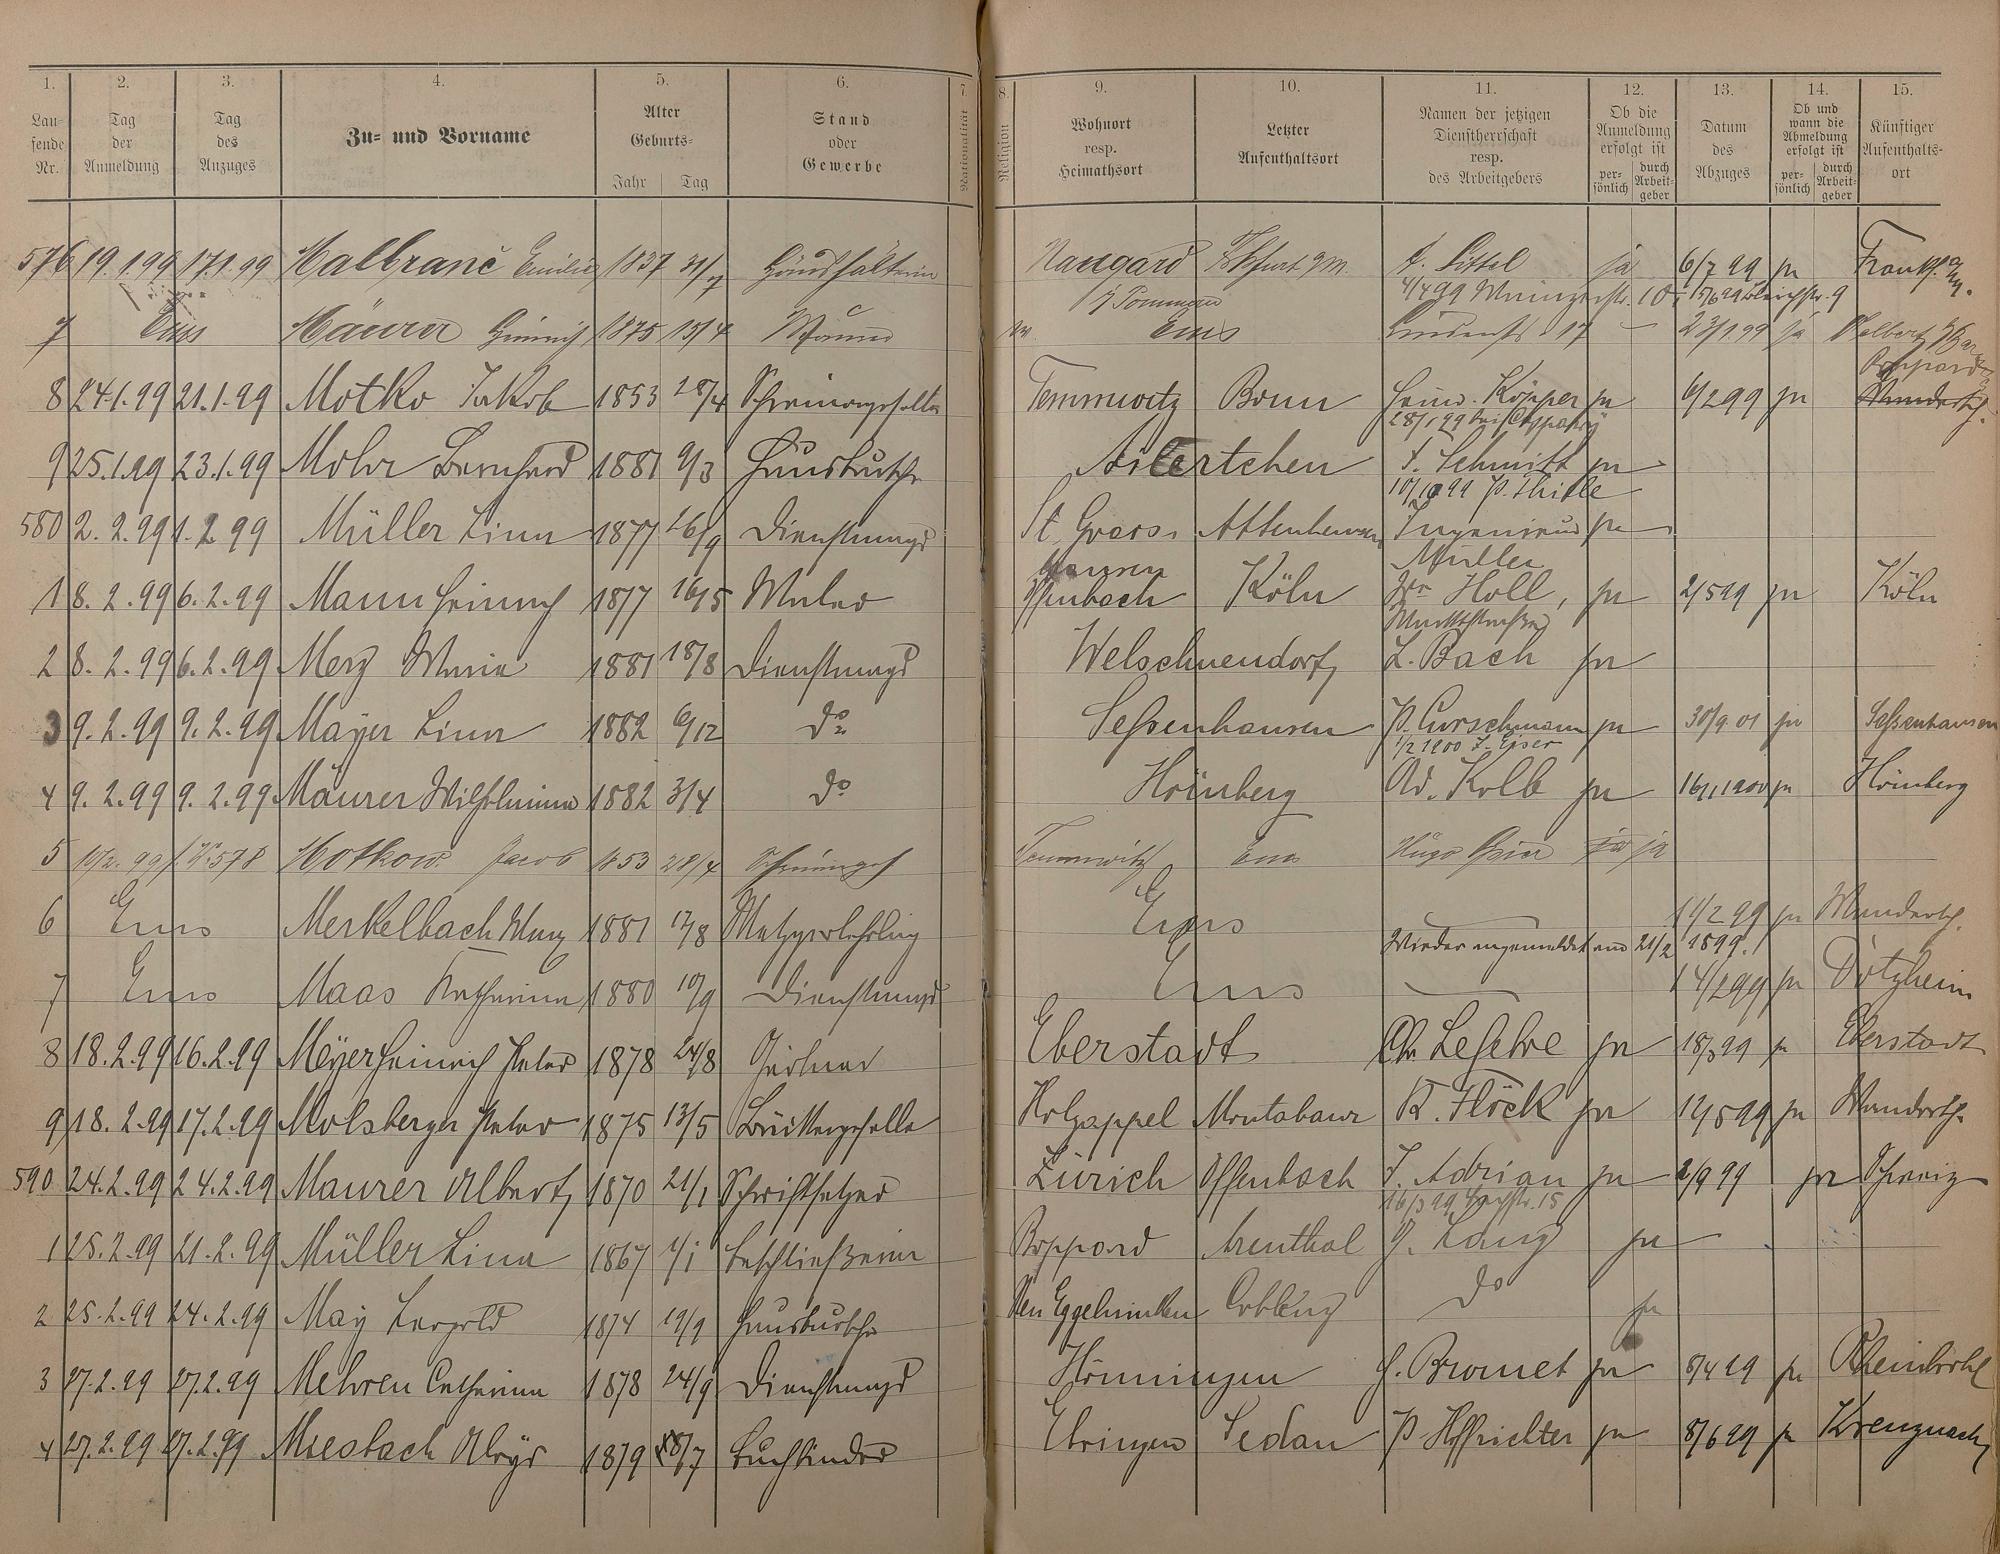 1. 2. 3. 4. 5. 6. 7. 8. 9. 10. 11. 12. 13. 14. 15.
Laufende Nr. Tag der Anmeldung Tag des Anzuges Zu- und Vorname Alter Geburts- Jahr Tag Stand oder Gewerbe Nationalität Religion Wohnort resp. Heimathsort Letzter Aufenthaltsort Namen der jetzigen Dienstherrschaft resp. des Arbeitgebers Ob die Anmeldung erfolgt ist persönlich durch Arbeitgeber Datum des Abzuges Ob und wann die Abmeldung erfolgt ist persönlich durch Arbeitgeber Künftiger Aufenthaltsort
576 19.1.99 17.1.99 Malbranc Emilie 1837 31/7 Haushälterin Naugard Fkfurt a/M. Sittel ja 6/7 99 ja Frankf. a/M.
i/ Pommern 4/4 99
7 Ems Mäurer Heinrich 1875 15/4 Ems 17 — 23/1 99 ja
8 24.1.99 21.1.99 Motko Jakob 1853 28/4 Schreinergeselle Temmwitz Bonn Heinr. Köpper ja 6/2 99 ja Boppard Wandersch.
28/1 99 bei
9 25.1.99 23.1.99 Mohr Bernhard 1881 9/3 Hausbursche Astertchen F. Schmitt ja
10/10 99 P. Thiele
580 2.2.99 1.2.99 Müller Lina 1877 26/9 Dienstmagd St. Goars- Attenhausen Ingenieur ja
hausen Müller
1 8.2.99 6.2.99 Mann Heinrich 1877 16/5 Maler Offenbach Köln Holl, ja 2/5 99 ja Köln
Marktstraße
2 8.2.99 6.2.99 Merz Maria 1881 18/8 Dienstmagd Welschneudorf L. Bach ja
3 9.2.99 9.2.99 Mayer Lina 1882 6/12 do Seßenhausen P. Curschmann ja 30/9 01 ja Seßenhausen
1/2 1900
4 9.2.99 9.2.99 Maurer Wilhelmine 1882 3/4 do Hömberg Ad. Kolb ja 16/1 1900 ja Hömberg
5 10/2.99 f. No 578 Motkow Jacob 1853 28/4 Temmwitz Ems Hugo ja
6 Ems Merkelbach Max 1881 17/8 Metzgerlehrling Ems 11/2 99 ja Wandersch.
Wieder angemeldet am 21/2 1899.
7 Ems Maas Katharina 1880 10/9 Dienstmagd Ems 14/2 99 ja Dotzheim
8 18.2.99 16.2.99 Meyer Heinrich Peter 1878 24/8 Gärtner Eberstadt Chr. Lefebre ja 18/3 99 ja Eberstadt
9 18.2.99 17.2.99 Molsberger Peter 1875 13/5 Bäckergeselle Holzappel Montabaur R. Flöck ja 12/5 99 ja Wandersch.
590 24.2.99 24.2.99 Maurer Albert 1870 21/1 Schriftsetzer Zürich Offenbach J. Adrian ja 2/9 99 ja Schweiz
16/3 99 15
1 25.2.99 21.2.99 Müller Lina 1867 1/1 Beschließerin Boppard Arenthal J. Lang ja
2 25.2.99 24.2.99 May Leopold 1874 19/9 Hausbursche Coblenz do ja
3 27.2.99 27.2.99 Mehren Catharina 1878 24/9 Dienstmagd Hönningen H. Bromet ja 8/4 99 ja Rheinbrohl
4 27.2.99 27.2.99 Miesbach Aloys 1879 18/7 Buchbinder Ehringen Sedan P. Hoffrichter ja 8/6 99 ja Kreuznach